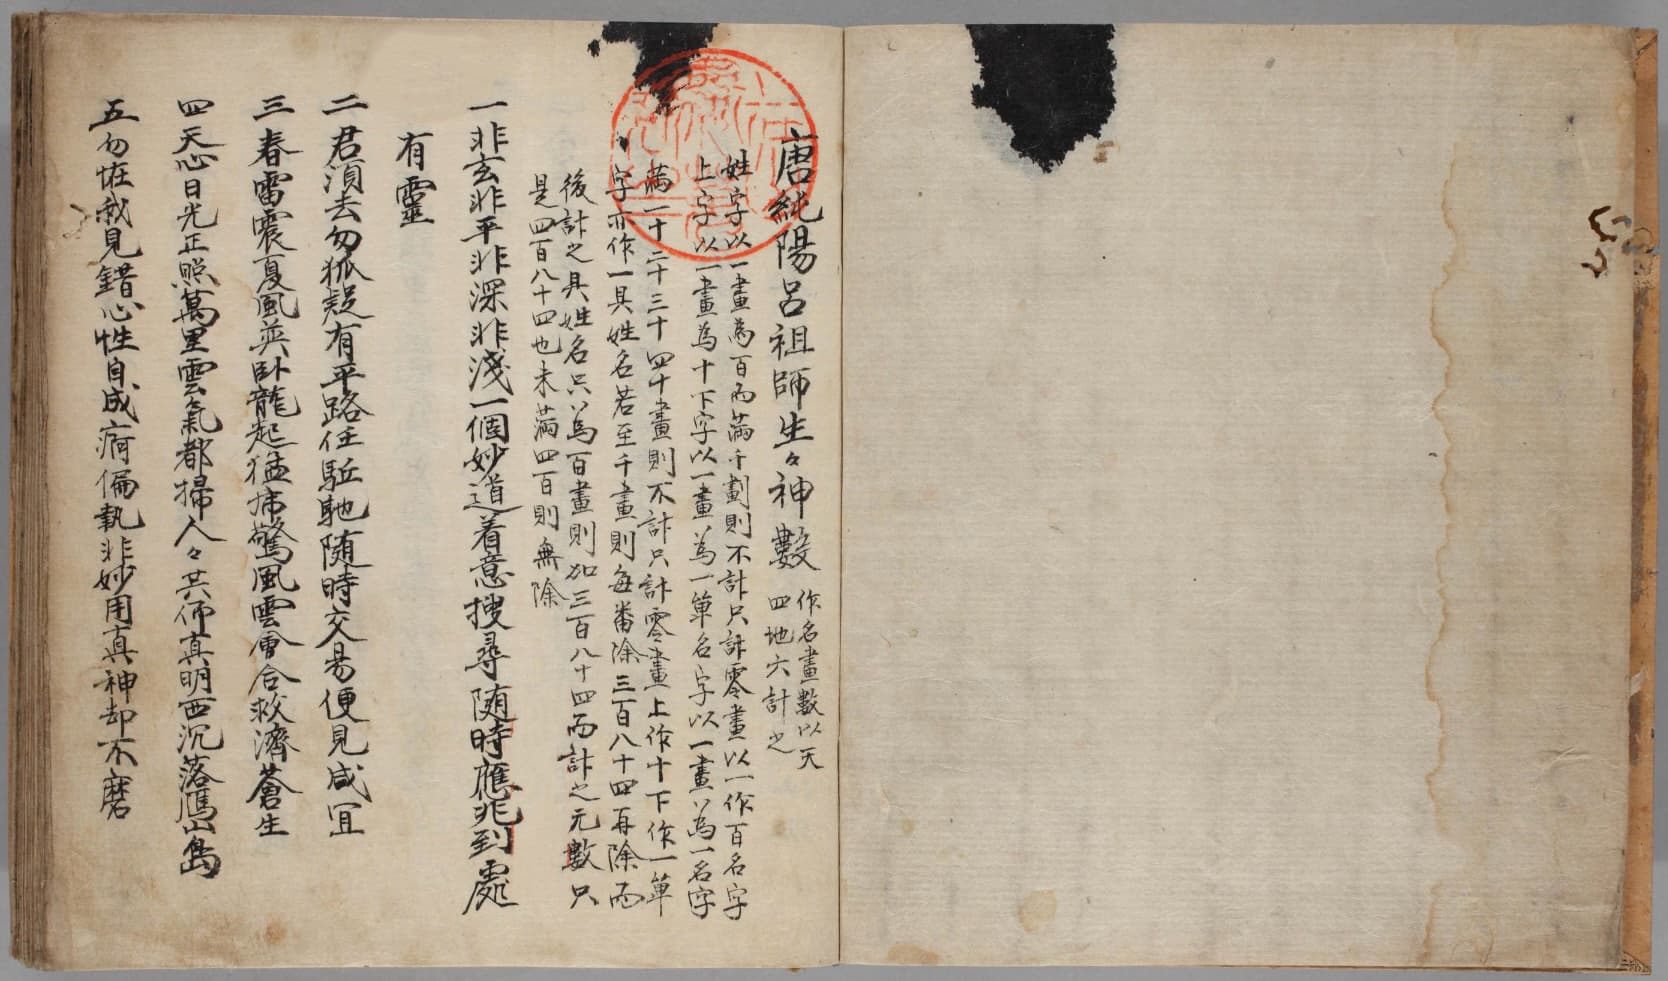 唐純陽呂祖師生々神數 作名畫數以天
四地六計之
姓字以一畫為百而滿千劃則不計只計零畫以一作百名字
上字以一畫為十下字以一畫為一單名字以一畫為一名字
滿一十二十三十四十畫則不計只計零畫上作十下作一單
字亦作一具姓名若至千畫則每番除三百八十四再除而
後計之具姓名只為百畫則加三百八十四而計之元數只
是四百八十四也未滿四百則無除
一非玄非平非深非淺一個妙道着意搜尋随時應兆到處
有靈
二君須去勿狐疑有平路任駈馳随時交易便見咸宜
三春雷震夏風巽卧龍起猛虎驚風雲會合救濟蒼生
四天心日光正照萬里雲氣都掃人々共仰真明西沉落鴈山島
五勿恠我見錯心性自成痾偏執非妙用真神却不磨